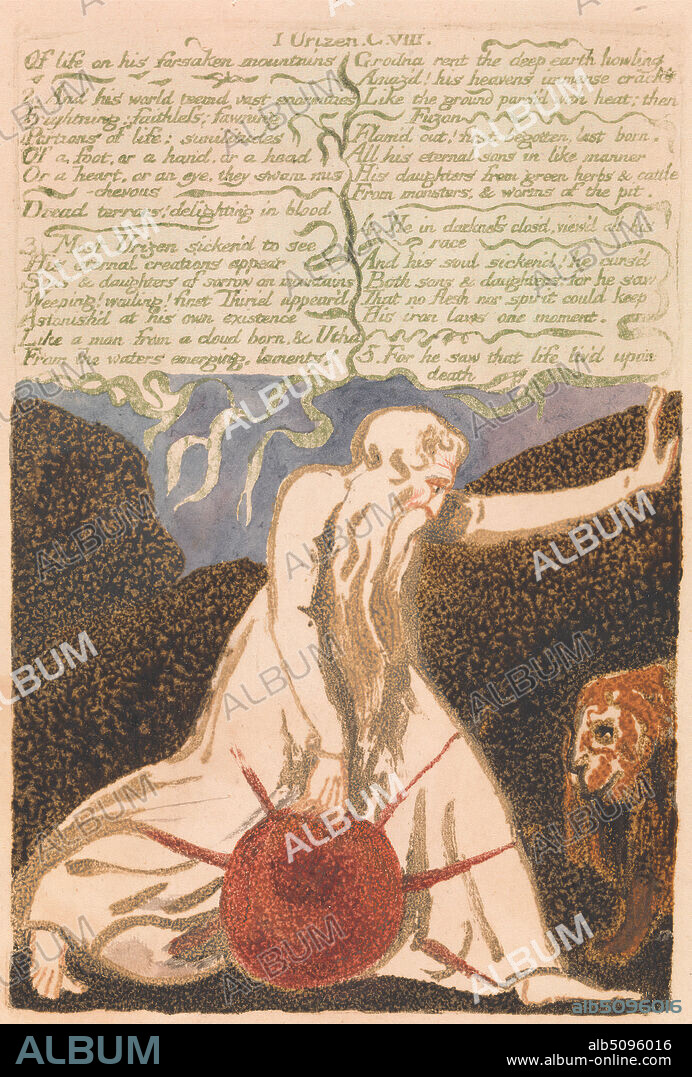 I Urizen. C.VIII.
Of life on his forsaken mountains
2. And his world teemd vast enormities
Frightning; faithless; fawning
Portions of life; similitudes
Of a foot, or a hand, or a head
Or a heart, or an eye, they swam mis
-chevous
Dread terrors! delighting in blood
3. Most Urizen sicken'd to see
His eternal creations appear
Sons & daughters of sorrow on mountains
Weeping! wailing! first Thiriel appear'd
Astonish'd at his own existence
Like a man from a cloud born, & Utha
From the waters emerging, laments
Grodna rent the deep earth howling
Amaz'd! his heavens immense cracks
Like the ground parch'd with heat; then
Fuzon
Flam'd out! first begotten, last born.
All his eternal sons in like manner
His daughters from green herbs & cattle
From monsters, & worms of the pit.
4. He in darkness clos'd, view'd all his
race
And his soul sicken'd! he curs'd
Both sons & daughters; for he saw
That no flesh nor spirit could keep
His iron laws one moment.
5. For he saw that life liv'd upon
death
alb5096016
ALBUM
alb5096016
www.album-online.com